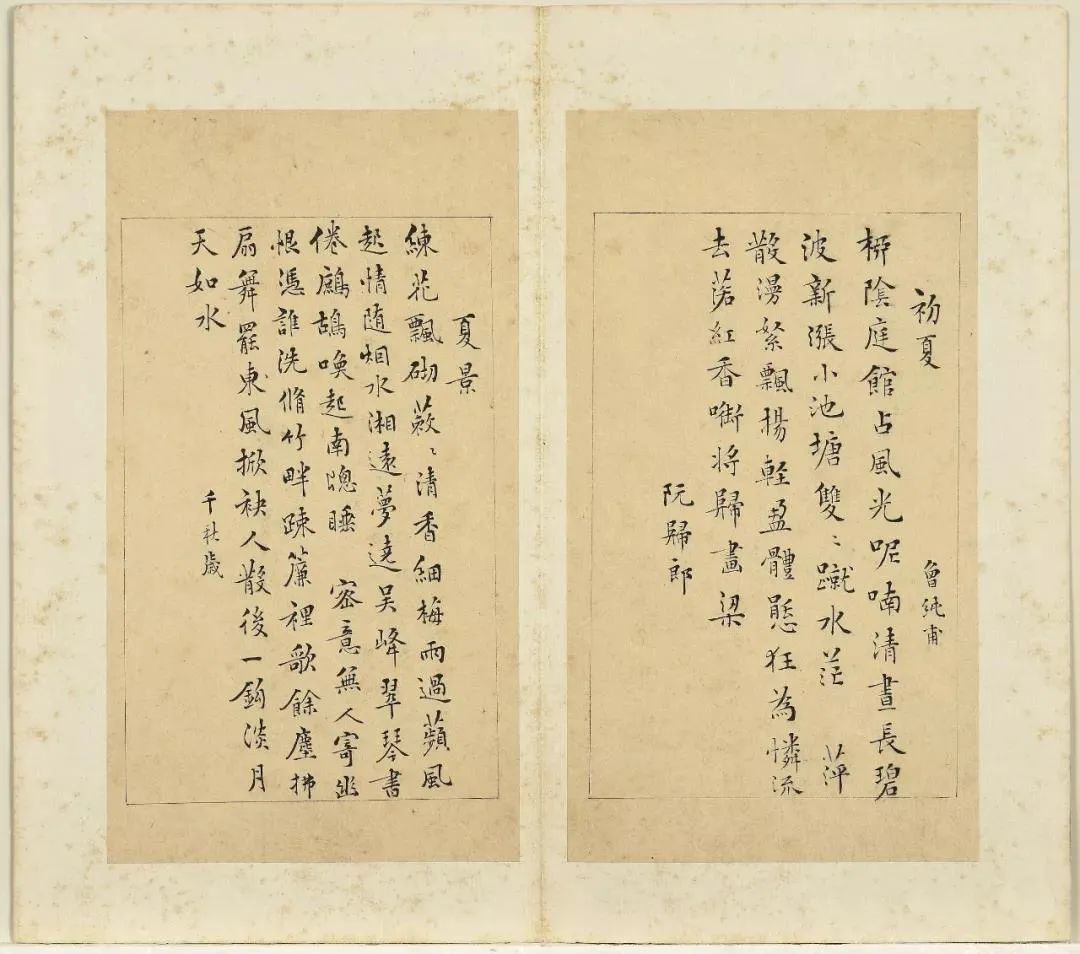 初夏
曾純甫
桺陰庭館占風光呢喃清晝長碧
波新漲小池塘雙〻蹴水茫 萍
散漫絮飄揚軽盈體態狂為憐流
去落紅香啣將歸畫梁
阮歸郎
夏景
練花飄砌蔌〻清香細梅雨過蘋風
起情随烟水湘遠夢遶吴峰翠琴書
倦鷓鴣喚起南牕睡 密意無人寄幽
恨憑誰洗脩竹畔疎簾裡歌餘塵拂
扇舞罷東風掀袂人散後一鈎淡月
天如水
千秋歳